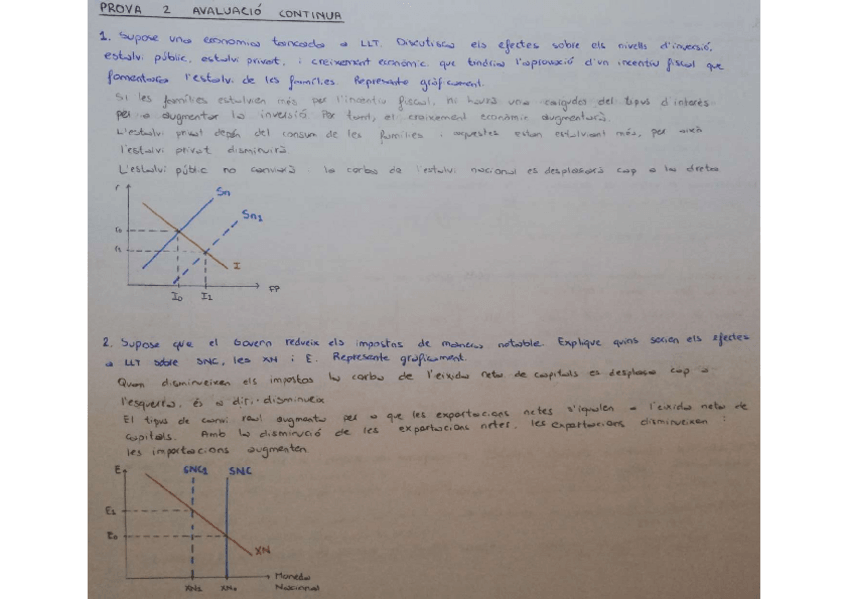 PROVA 2 AVALUACIÓ CONTINUA
1. Supose una economia tancada a LLT. Discutisca els efectes sobre els nivells d'inversió,
estalvi públic, estalvi privat, i creixement econòmic que tindria l'aprovació d'un incentiu fiscal que
fomentara l'estalvi de les famílies. Represente gràficament.
Si les famílies estalvien més per l'incentiu fiscal, hi haurà una caiguda del tipus d'interés
per a augmentar la inversió. Per tant, el creixement econòmic augmentarà.
L'estalvi privat depén del consum de les famílies i aquestes estan estalviant més, per això
l'estalvi privat disminuirà.
L'estalvi públic no canviarà i la corba de l'estalvi nacional es desplaçarà cap a la dreta
r
Sn
Sn1
r0
r1
I
I0 I1
FP
2. Supose que el Govern redueix els impostos de manera notable. Explique quins serien els efectes
a LLT sobre SNC, les XN i E. Represente gràficament.
Quan disminueixen els impostos la corba de l'eixida neta de capitals es desplaça cap a
l'esquerra, és a dir, disminueix
El tipus de canvi real augmenta per a que les exportacions netes s'igualen a l'eixida neta de
capitals. Amb la disminució de les exportacions netes, les exportacions disminueixen i
les importacions augmenten.
E
SNC1 SNC
E1
E0
XN
XN1 XN0
Moneda
Nacional